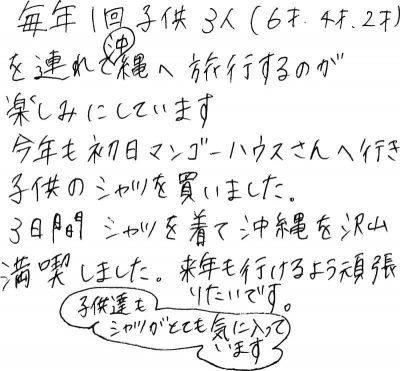 毎年1回子供3人(6才.4才.2才)
を連れて沖縄へ旅行するのが
楽しみにしています
今年も初日マンゴーハウスさんへ行き
子供のシャツを買いました。
3日間シャツを着て沖縄を沢山
満喫しました。来年も行けるよう頑張
りたいです。
子供達も
シャツがとても気に入って
います